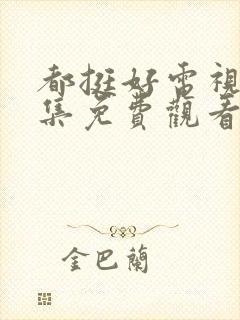 都挺好電視
集免費觀看
金巴蘭